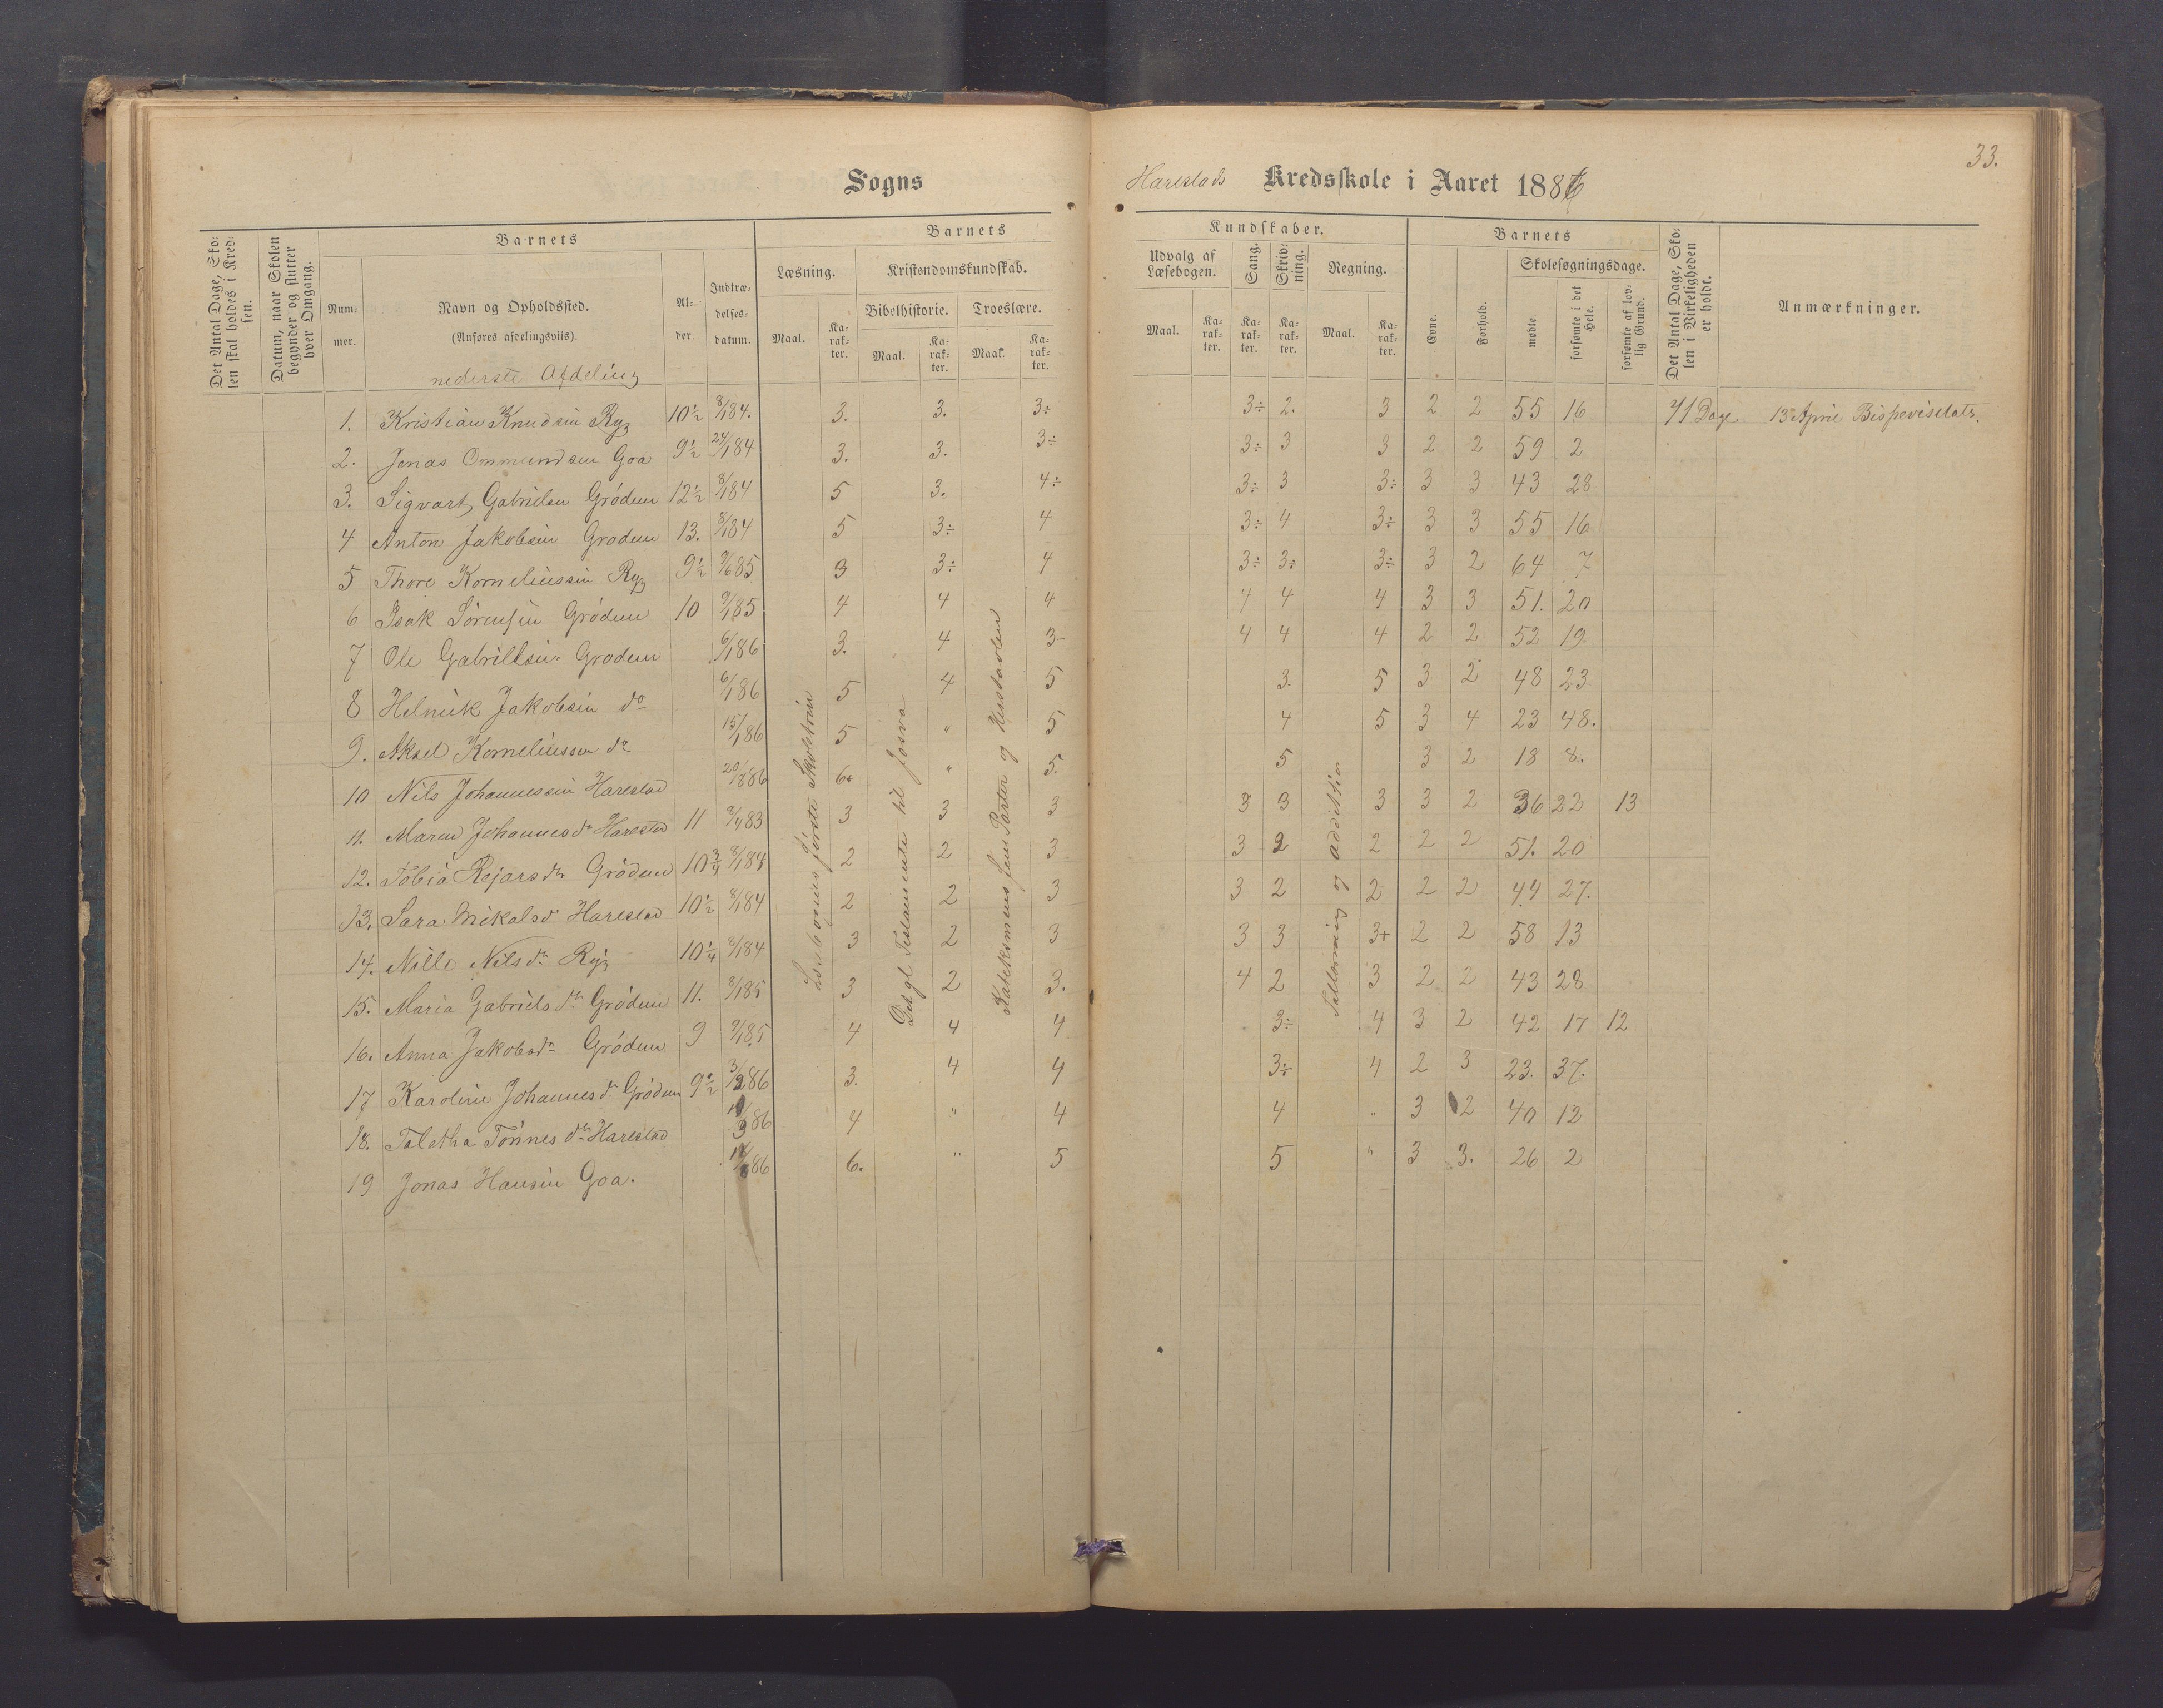 33.
Sogns
Harestads Kredsskole i Aaret 1886
Det Antal Dage, Skolen skal holdes i Kredsen.
Datum, naar Skolen begynder og slutter hver Omgang.
Barnets
Nummer.
Navn og Opholdssted.
(Anføres afdelingsviis).
Alder.
Indtrædelses-datum.
Barnets
Læsning.
Maal.
Karakter.
Kristendomskundskab.
Bibelhistorie.
Maal.
Karakter.
Troeslære.
Maal.
Karakter.
Kundskaber.
Udvalg af Læsebogen.
Maal.
Karakter.
Sang.
Karakter.
Skrivning.
Karakter.
Regning.
Maal.
Karakter.
Barnets
Evne.
Forhold.
Skolesøgningsdage.
mødte.
forsømte i det Hele.
forsømte af lovlig Grund.
Det Antal Dage, Skolen i Virkeligheden er holdt.
Anmærkninger.
nederste Afdeling
1. Kristian Knudsen Ryg 10½ 8/1 84. 3. 3. 3÷ 3÷ 2. 3 2 2 55 16 71 Dage 13de April Bispevisitats.
2. Jonas Ommundsen Goa 9½ 24/1 84 3. 3. 3÷ 3÷ 3 3 2 2 59 2
3. Sigvart Gabrielsen Grödem 12½ 8/1 84 5 3. 4÷ 3÷ 3 3÷ 3 3 43 28
4 Anton Jakobsen Grodem 13. 8/1 84 5 3÷ 4 3÷ 4 3÷ 3 3 55 16
5 Thore Korneliussen Ryg 9½ 9/6 85 3 3÷ 4 3÷ 3÷ 3÷ 3 2 64 7
6 Isak Sörensen Grödem 10 9/1 85 4 4 4 4 4 4 3 3 51. 20
7 Ole Gabrielsen Grodem 6/1 86 3. 4 3- 4 4 4 2 2 52 19
8 Helmik Jakobsen do 6/1 86 5 4 5, 3. 5 3 2 48 23
9. Aksel Korneliussen do 15/1 86 5 " 5, 4 5 3 4 23 48.
10 Nils Johannessen Harestad 20/8 86 6. " 5. 5 3 2 18 8.
11. Maren Johannesdr Harestad 11 3 3 3 3 3 3 3 2 36 22 13
12. Tobia Rejarsdr Grödem 10¾ 8/1 84 2 2 3 3 2 2 2 2 51. 20
13. Sara Mikalsdr Harestad 10½ 8/1 84 2 2 3 3 2 2 2 2 44 27.
14. Nille Nilsdr Ryg 10¼ 8/1 84 3 2 3 3 3 3+ 2 2 58 13
15. Maria Gabrielsdr Grödem 11. 8/1 85 3 2 3. 4 2 3 2 2 43 28
16. Anna Jakobsdr Grödem 9 9/1 85 4 4 4 3÷ 4 3 2 42 17 12
17 Karoline Johannesdr Grödem 9½ 3. 4 4 3÷ 4 2 3 23. 37.
18. Taletha Tönnesdr Harestad 86 4 " 4 4 " 3 2 40 12
19 Jonas Hansen Goa. 86 6. " 5 5 " 3 3. 26 2
Læsebogens förste Skoletrin
Det gl Testamente til Josva
Katekismens fem Parter og Hustavlen
Tallæsning og Addition